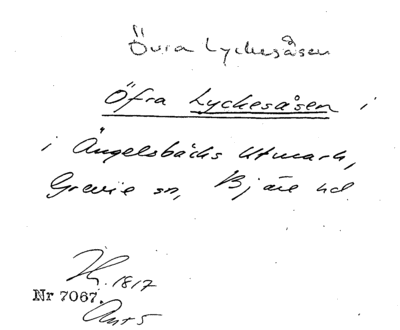 Övra Lyckesåsen
Öfra Lyckesåsen i
i Ängelsbäcks Utmark,
Grevie sn, Bjäre hd.
1817
Nr 7067.